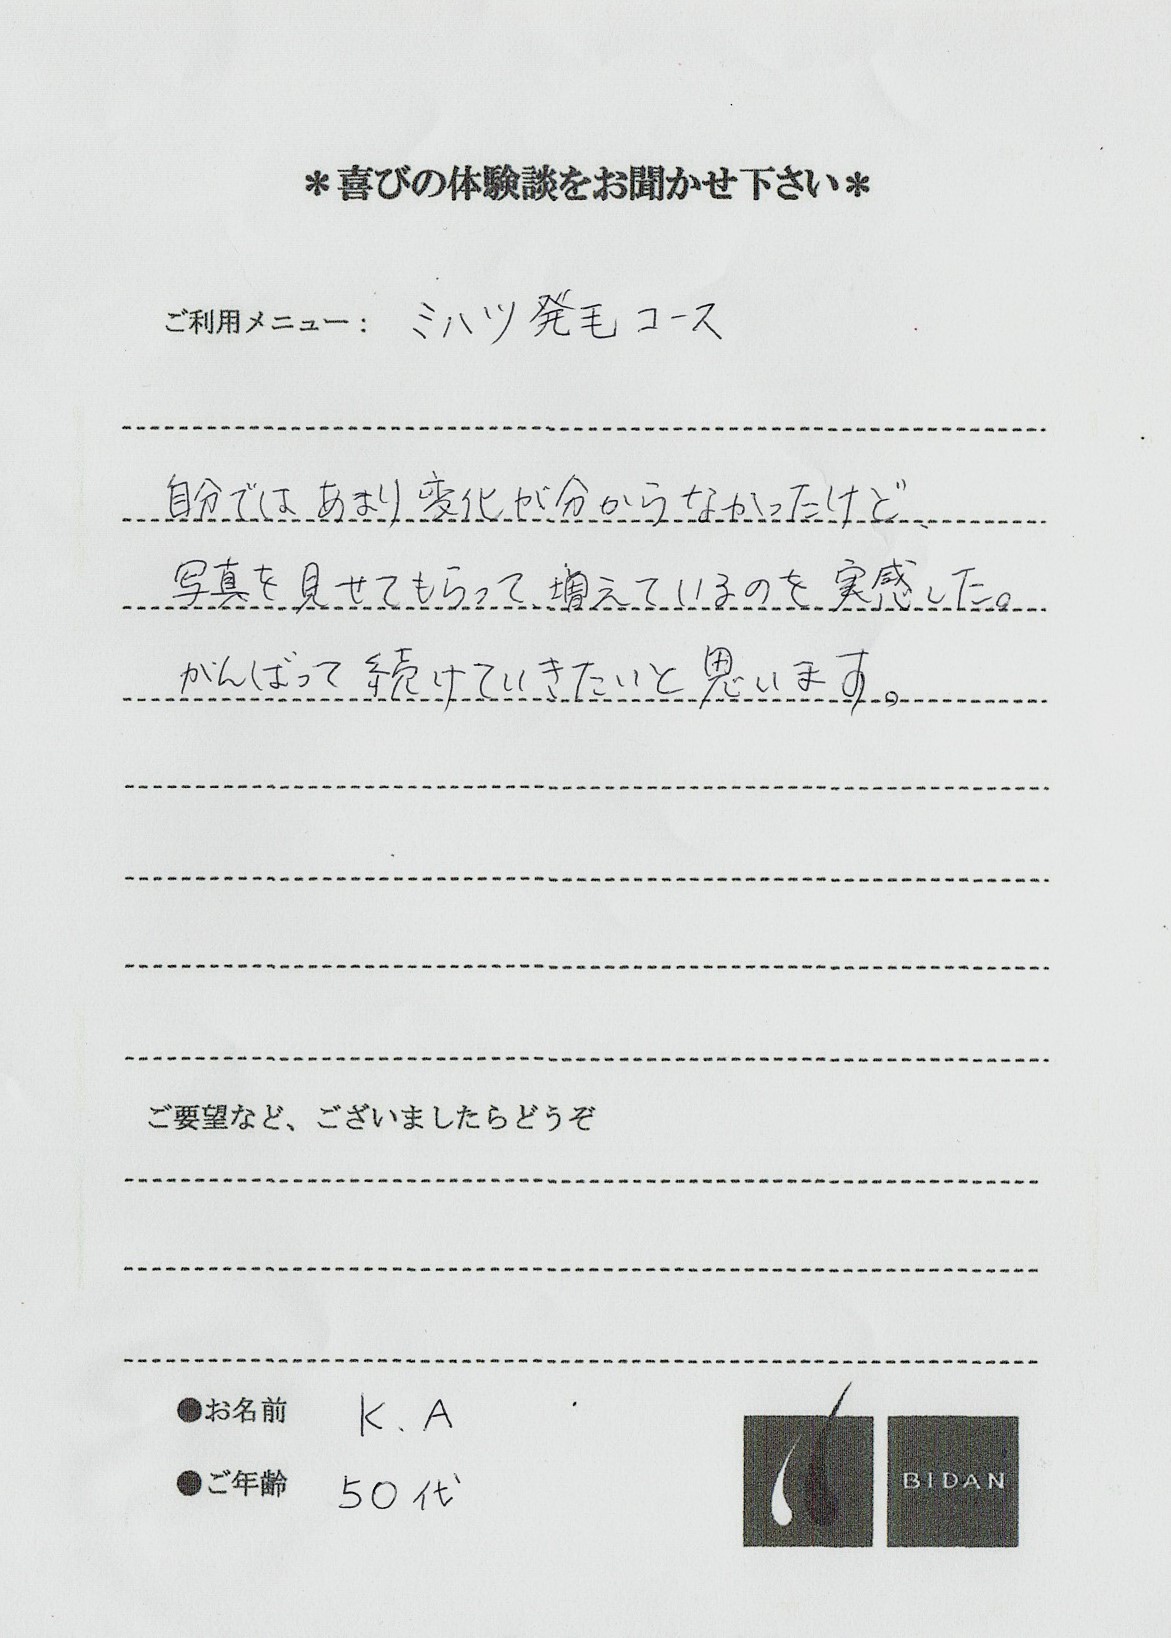 ＊喜びの体験談をお聞かせ下さい＊
ご利用メニュー： ミハツ発毛コース
自分ではあまり変化が分からなかったけど、
写真を見せてもらって、増えているのを実感した。
がんばって続けていきたいと思います。
ご要望など、ございましたらどうぞ
●お名前 K.A
●ご年齢 50代
BIDAN